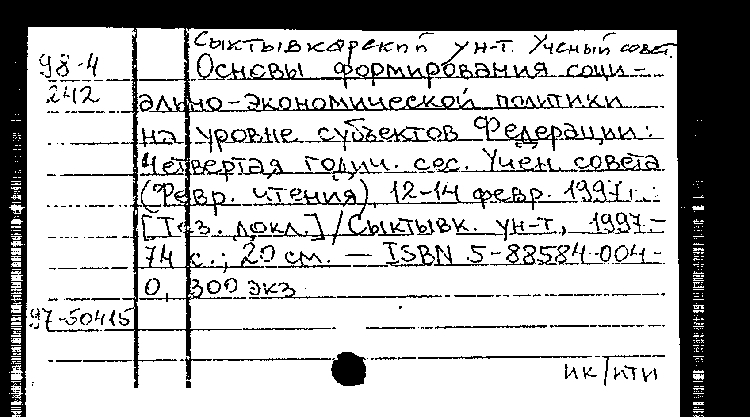 Сыктывкарский ун-т. Ученый совет.
98-4 Основы формирования соци-
242 ально-экономической политики
на уровне субъектов Федерации:
Четвертая годич. сес. Учен. совета
(Февр. чтения), 12-14 февр. 1997 г.:
[Тез. докл.] / Сыктывк. ун-т, 1997.-
74 с.; 20 см. — ISBN 5-88584-004-
0, 300 экз
97-50415